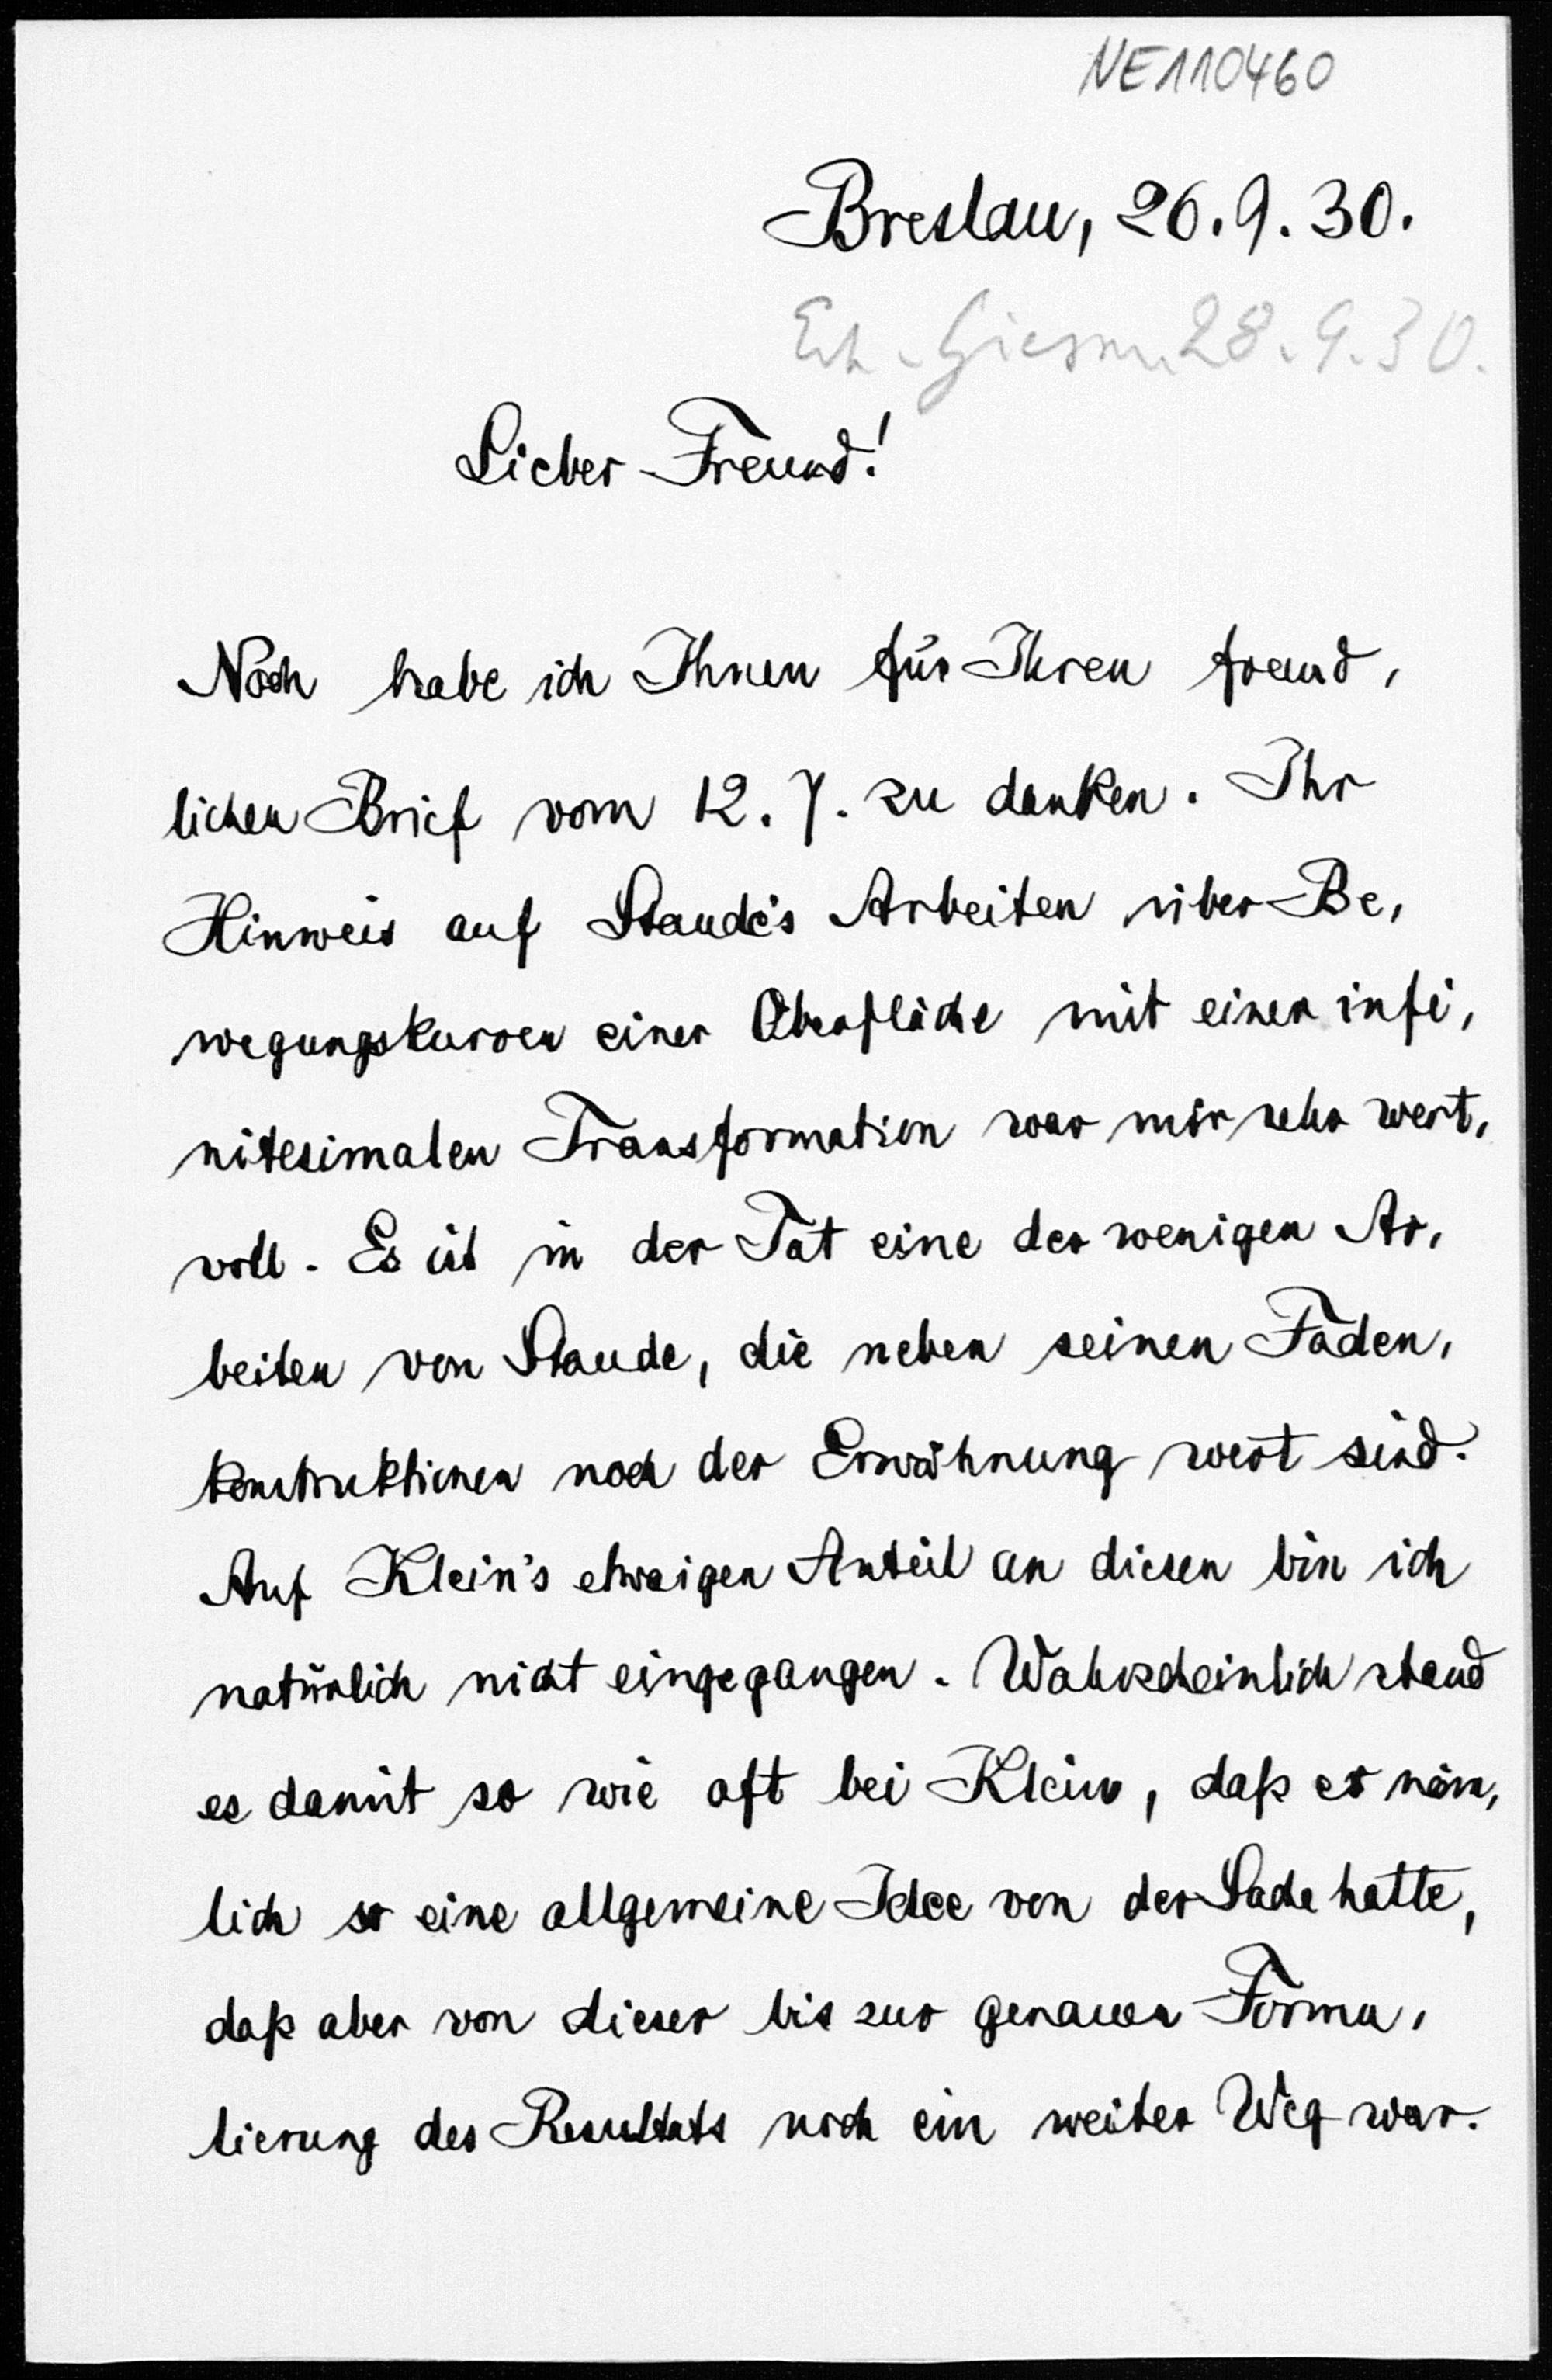 NE110460
Breslau, 26.9.30.
28.9.30.
Lieber Freund!
Noch habe ich Ihnen für Ihren freund,
lichen Brief vom 12.7. zu danken. Ihr
Hinweis auf Staude's Arbeiten über Be,
wegungskurven einer Oberfläche mit einer infi,
nitesimalen Transformation war mir sehr wert,
voll. Es ist in der Tat eine der wenigen Ar,
beiten von Staude, die neben seinen Faden,
konstruktionen noch der Erwähnung wert sind.
Auf Klein's etwaigen Anteil an diesen bin ich
natürlich nicht eingegangen. Wahrscheinlich stand
es damit so wie oft bei Klein, daß er näm,
lich so eine allgemeine Idee von der Sache hatte,
daß aber von dieser bis zur genauen Formu,
lierung des Resultats noch ein weiter Weg war.